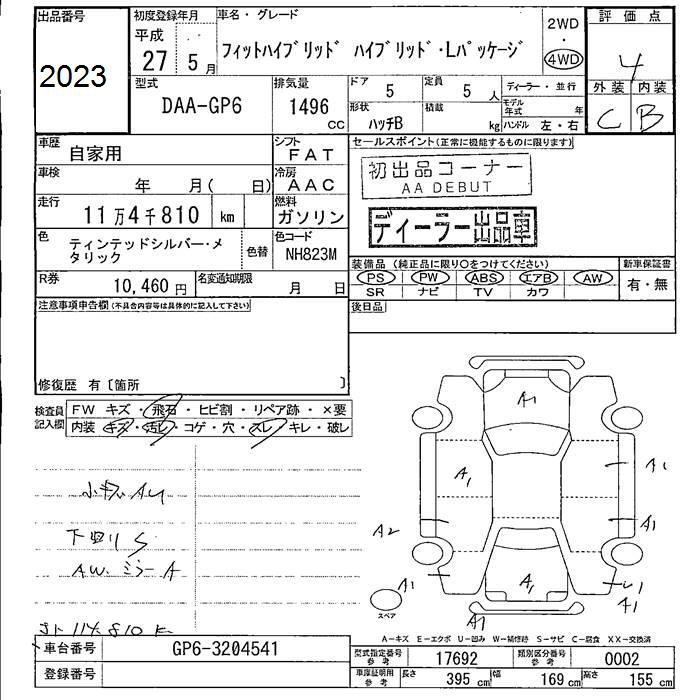 出品番号
2023
初度登録年月
平成
27 5月
車名・グレード
フィットハイブリッド ハイブリッド・Lパッケージ
2WD
・
4WD
評価点
4
外装 内装
C B
型式
DAA-GP6
排気量
1496
CC
ドア
5
定員
5 人
形状
ハッチB
積載
kg
ディーラー・並行
モデル年式 年
ハンドル 左・右
車歴
自家用
シフト
FAT
車検
年 月( 日)
冷房
AAC
走行
11万4千810 km
燃料
ガソリン
色
ティンテッドシルバー・メタリック
色替
色コード
NH823M
R券
10,460 円
名変通知期限
月 日
セールスポイント(正常に機能するものに限ります)
初出品コーナー
AA DEBUT
ディーラー出品車
装備品(純正品に限り○をつけてください)
新車保証書
PS PW ABS エアB AW
SR ナビ TV カワ
有・無
後日品
注意事項申告欄(不具合内容等は具体的に記入して下さい)
修復歴 有〔箇所 〕
検査員記入欄
FW キズ・飛石・ヒビ割・リペア跡・×要
内装 キズ・汚レ・コゲ・穴・スレ・キレ・破レ
下回りS
AW. ミラーA
A1
A1
A1
A2
A1
A1
A1
A1
A1
スペア
A－キズ E－エクボ U－凹み W－補修跡 S－サビ C－腐食 XX－交換済
車台番号
GP6-3204541
登録番号
型式指定番号 参考
17692
類別区分番号 参考
0002
車庫証明用 参考
長さ 395 cm
幅 169 cm
高さ 155 cm